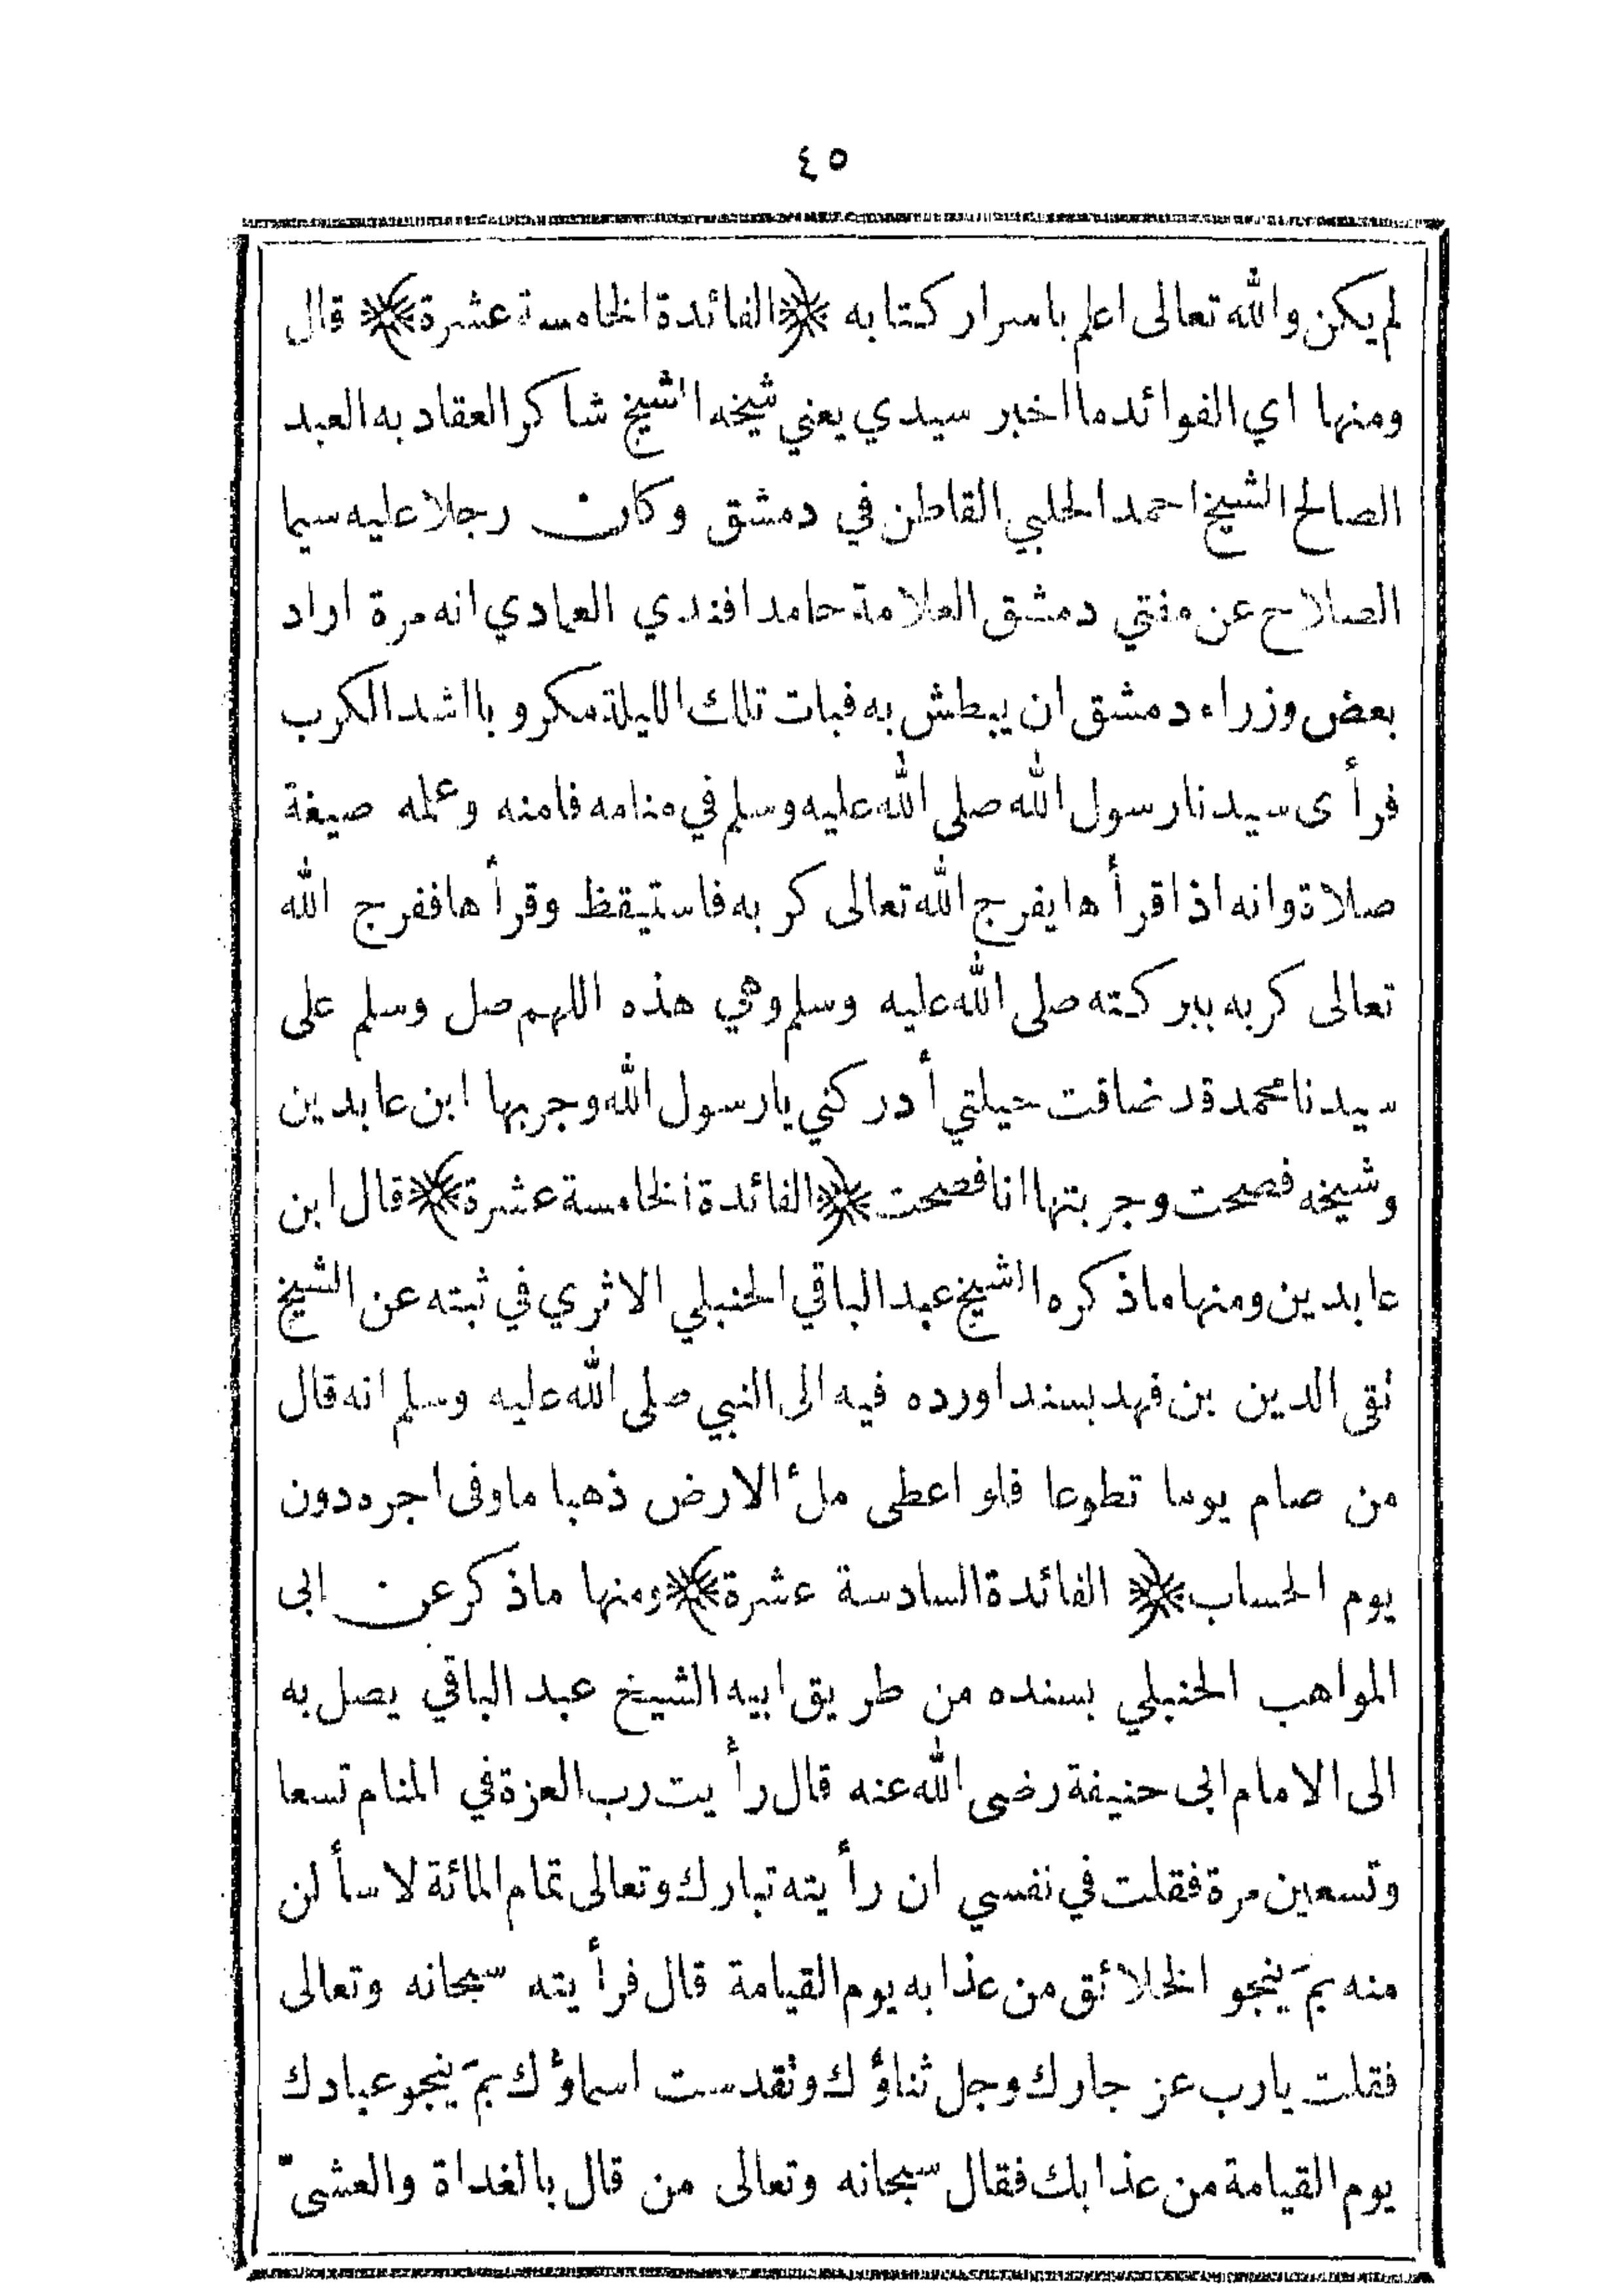 ٤٥
لم يكن والله تعالى اعلم باسرار كتابه ﴿الفائدة الخامسة عشرة﴾ قال
ومنها اي الفوائد ما اخبر سيدي يعني شيخه الشيخ شاكر العقاد به العبد
الصالح الشيخ احمد الحلبي القاطن في دمشق وكان رجلا عليه سيما
الصلاح عن مفتي دمشق العلامة حامد افندي العمادي انه مرة اراد
بعض وزراء دمشق ان يبطش به فبات تلك الليلة مكروبا اشد الكرب
فرأى سيدنا رسول الله صلى الله عليه وسلم في منامه فامنه وعلمه صيغة
صلاة وانه اذا قرأها يفرج الله تعالى كربه فاستيقظ وقرأها ففرج الله
تعالى كربه ببركته صلى الله عليه وسلم وهي هذه اللهم صل وسلم على
سيدنا محمد قد ضاقت حيلتي أدركني يا رسول الله وجربها ابن عابدين
وشيخه فصحت وجربتها انا فصحت ﴿الفائدة الخامسة عشرة﴾ قال ابن
عابدين ومنها ما ذكره الشيخ عبد الباقي الحنبلي الاثري في ثبته عن الشيخ
تقى الدين بن فهد بسند اورده فيه الى النبي صلى الله عليه وسلم انه قال
من صام يوما تطوعا فلو اعطى ملٔ الارض ذهبا ما وفى اجره دون
يوم الحساب ﴿الفائدة السادسة عشرة﴾ ومنها ما ذكر عن ابى
المواهب الحنبلي بسنده من طريق ابيه الشيخ عبد الباقي يصل به
الى الامام ابى حنيفة رضى الله عنه قال رأيت رب العزة في المنام تسعا
وتسعين مرة فقلت في نفسي ان رأيته تبارك وتعالى تمام المائة لاسألن
منه بمَ ينجو الخلائق من عذابه يوم القيامة قال فرأيته سبحانه وتعالى
فقلت يا رب عز جارك وجل ثناؤك وتقدست اسماؤك بمَ ينجو عبادك
يوم القيامة من عذابك فقال سبحانه وتعالى من قال بالغداة والعشىّ